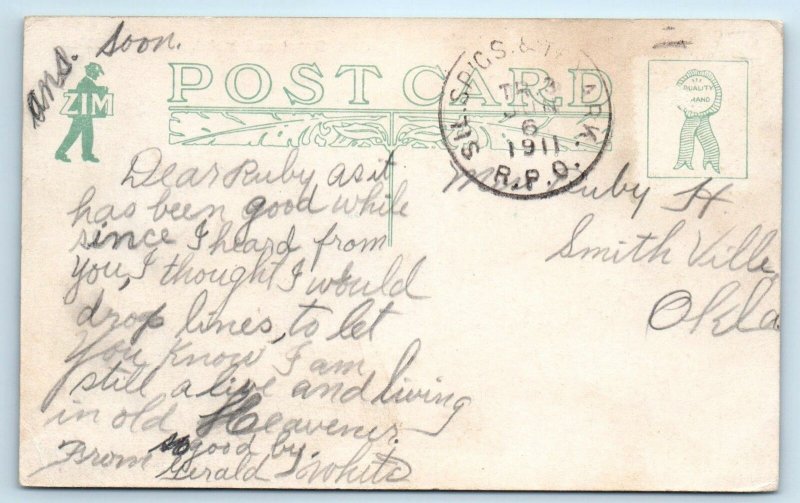 ans. soon.
ZIM
POST CARD
SIL. SPIGS. & TEX ARK.
TR 2
6
1911
R.P.O.
QUALITY
BRAND
Dear Ruby as it
has been good while
since I heard from
you, I thought I would
drop lines, to let
you know I am
still alive and living
in old Heavener.
so good by.
From Gerald J. White
Ruby H
Smith Ville,
Okla